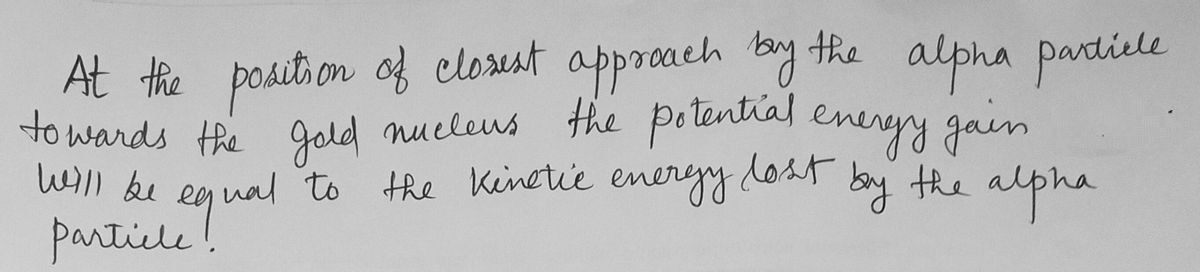 At the position of closest approach by the alpha particle
towards the gold nucleus the potential energy gain
will be equal to the kinetic energy lost by the alpha
particle!